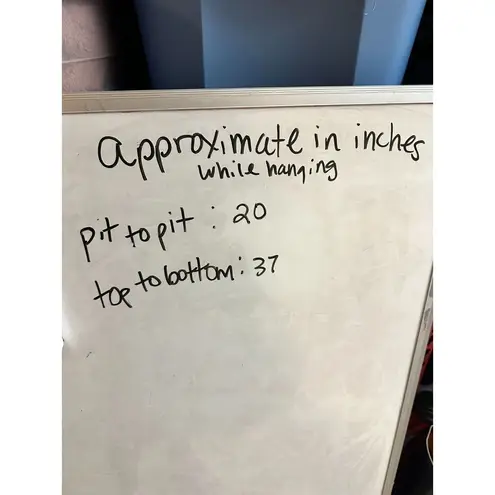 approximate in inches
while hanging
pit to pit : 20
top to bottom : 37